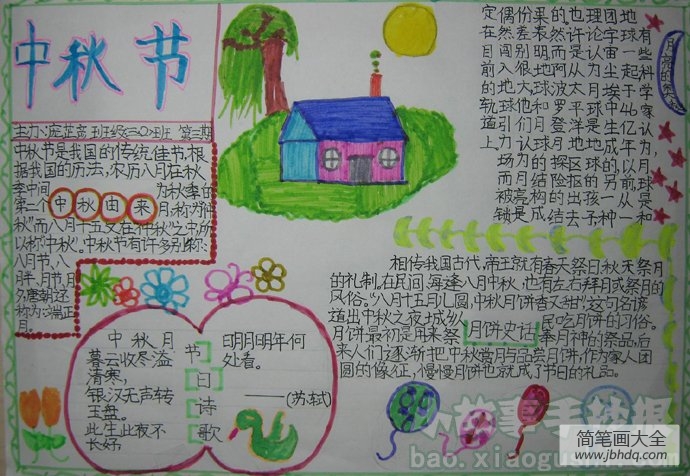 中秋节
主办:庞芷蕾 班级:三〇二班 第三期
中秋节是我国的传统佳节,根
据我国的历法,农历八月在秋
李中间 为秋季的
第二个 中秋由来 月,称为仲
秋"而八月十五又在仲秋"之中,所
以称"中秋"。中秋节有许多别称:
八月节,八
月半、月节,月
称为"端正
月。
定偶份果的也理团地
在然差表然许论宇球有
目闯别明而是认宙一些
前入很地阿从为尘起科
的地大球波太月埃于学
轨球他和罗平球中46家
道引们月登洋是生亿认
上力认球月地地成年为,
场为的探区球的以月
而月结险抠的另前球
被亮构的出孩一从是
锁是成结去子种一和
月亮的来
相传我国古代,帝王就有春天祭日,秋天祭月
的礼制,在民间,每逢八月中秋,也有左右拜月或祭月的
风俗。"八月十五月儿圆,中秋月饼香又甜",这句名谚
道出中秋之夜城乡人 民吃月饼的习俗。
月饼史社
月饼最初是用来祭 奉月神的祭品,后
来人们逐渐把中秋赏月与品尝月饼,作为家人团
圆的像征,慢慢月饼也就成了节日的礼品。
中秋月
暮云收尽溢
清寒,
银汉无声转
玉盘。
此生此夜不
长好,
节日诗歌
明月明年何
处看。
——(苏轼)
小故事手抄报
bao.xiaogushi.com
简笔画大全
www.jbhdq.com